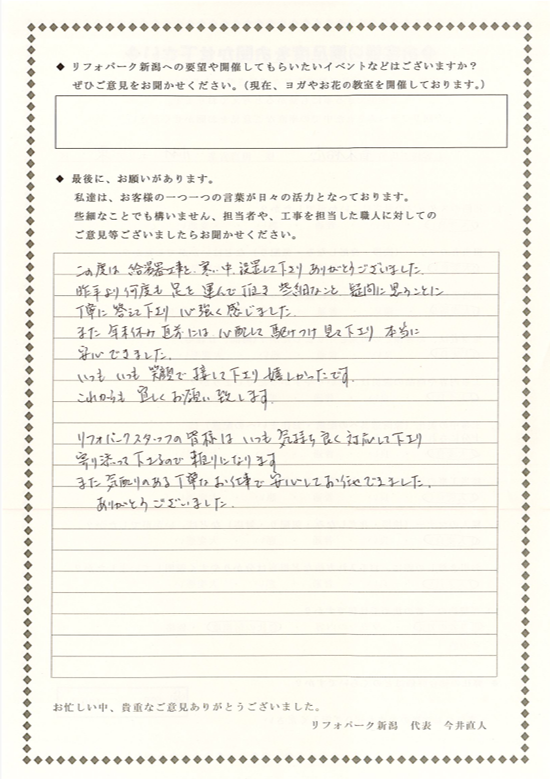 ◆ リフォパーク新潟への要望や開催してもらいたいイベントなどはございますか?
ぜひご意見をお聞かせください。(現在、ヨガやお花の教室を開催しております。)
◆ 最後に、お願いがあります。
私達は、お客様の一つ一つの言葉が日々の活力となっております。
些細なことでも構いません、担当者や、工事を担当した職人に対しての
ご意見等ございましたらお聞かせください。
この度は 給湯器工事を 寒い中 設置して下さり ありがとうございました。
昨年より何度も 足を 運んで頂き 些細なこと 疑問に思うことに
丁寧に 答えて下さり 心強く感じました。
また 年末休み直前には 心配して 駆けつけ 見て下さり 本当に
安心できました。
いつも いつも 笑顔で 接して下さり 嬉しかったです。
これからも 宜しくお願い致します。
リフォパークスタッフの皆様は いつも 気持ち良く対応して下さり
寄り添って下さるので 頼りになります
また 気配りのある 丁寧なお仕事で 安心してお任せできました。
ありがとうございました。
お忙しい中、貴重なご意見ありがとうございました。
リフォパーク新潟 代表 今井直人